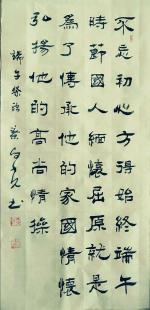 不忘初心方得始終端午
時節國人緬懷屈原就是
為了傳承他的家國情懷
弘揚他的高尚情操
端午祭